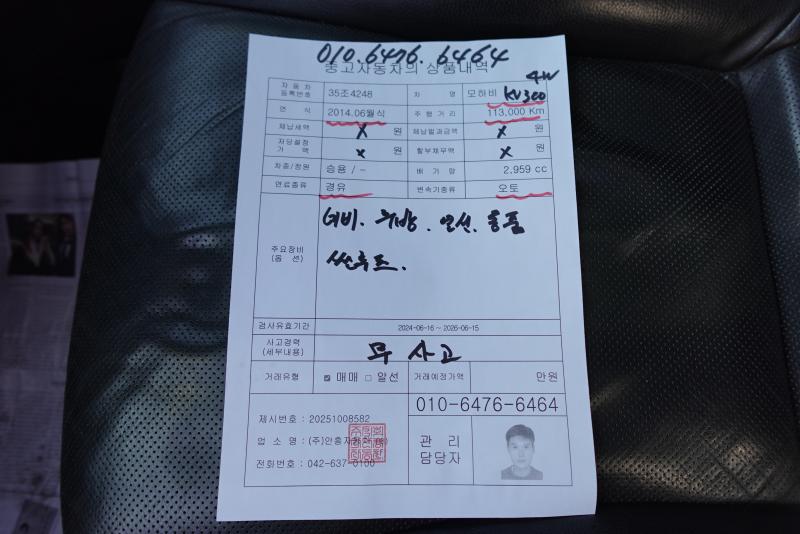 010.6476.6464
중고자동차의 상품내역
자동차등록번호 35조4248 차 명 모하비 KV300 4W
연 식 2014.06월식 주행거리 113,000 Km
체납세액 X 원 체납벌과금액 X 원
저당설정가액 X 원 할부채무액 X 원
차종/정원 승용 / - 배기량 2.959 cc
연료종류 경유 변속기종류 오토
주요장비(옵 션) 네비. 후방. 열선. 통풍
썬루프.
검사유효기간 2024-06-16 ~ 2026-06-15
사고경력(세부내용) 무 사고
거래유형 ☑ 매매 □ 알선 거래예정가액 만원
010-6476-6464
제시번호 : 20251008582
업 소 명 : (주)안흥자동차
전화번호 : 042-637-0100
관 리
담당자